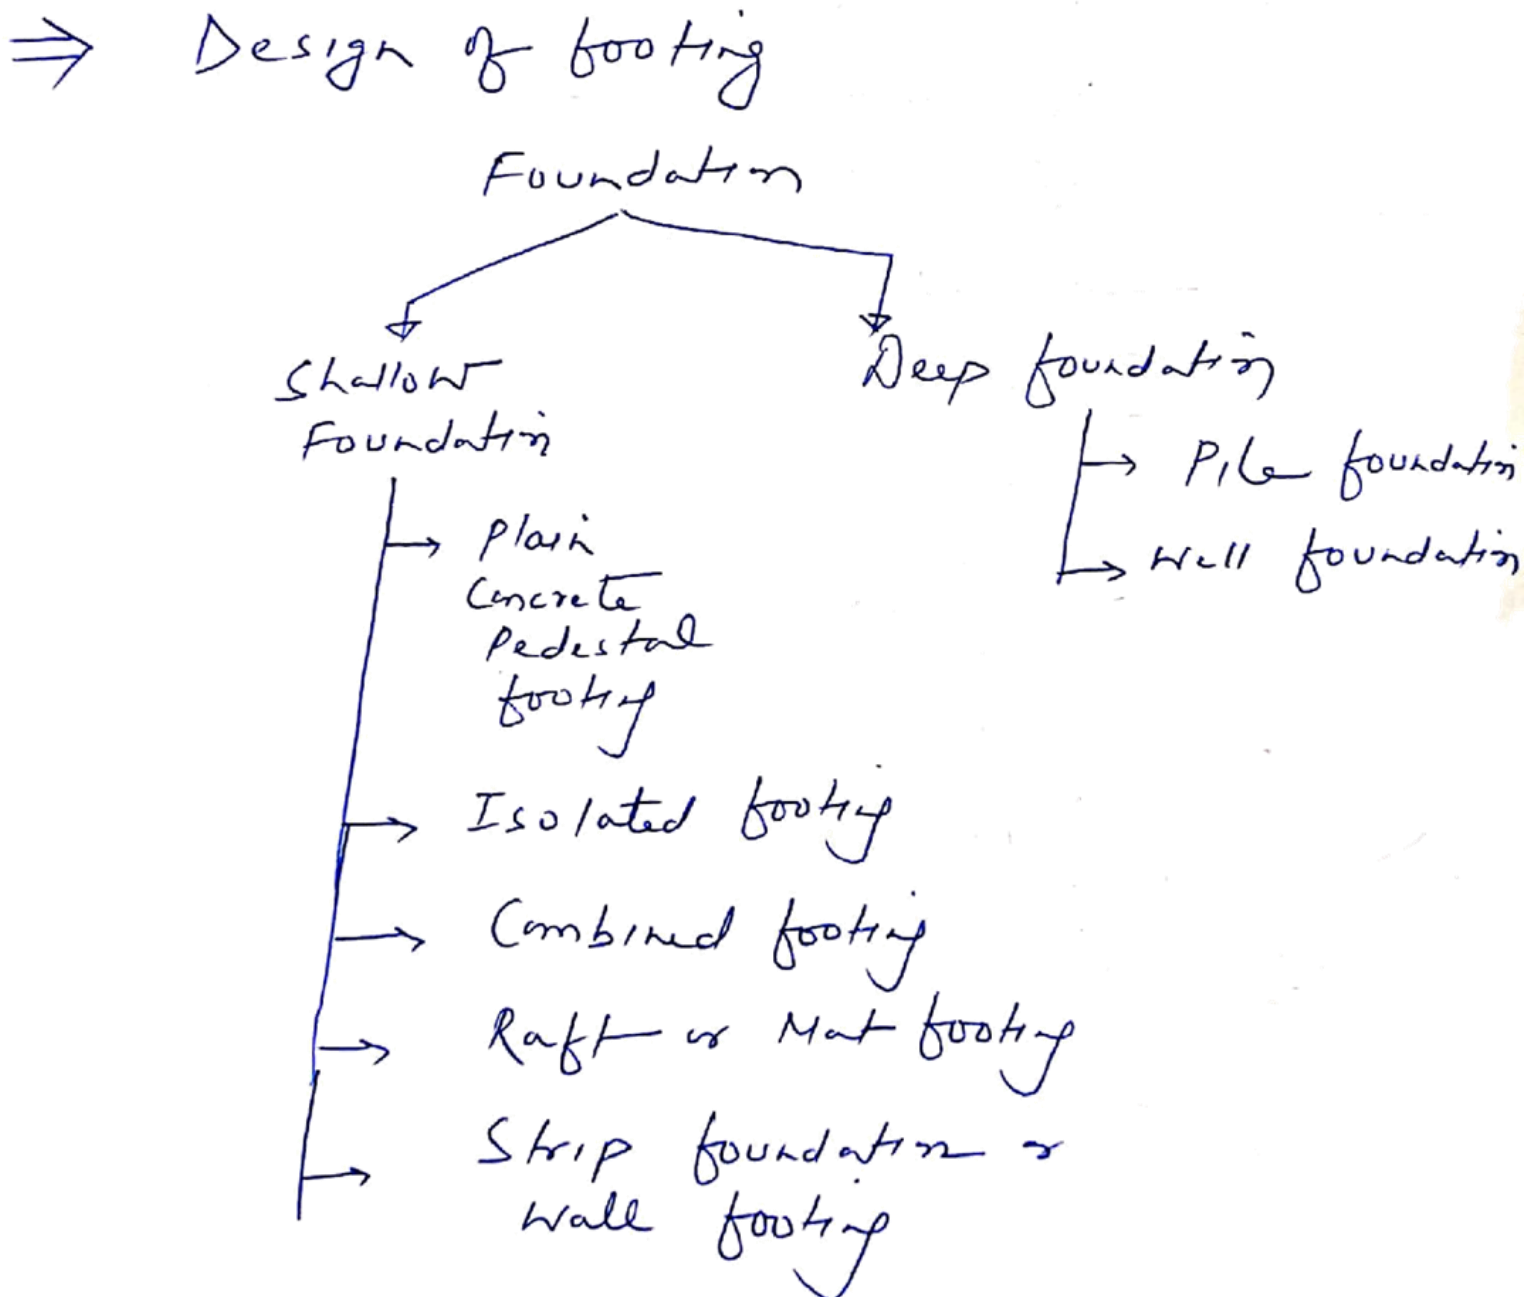 ⇒ Design of footing
Foundation
Shallow
Foundation
Plain
Concrete
Pedestal
footing
Isolated footing
Combined footing
Raft or Mat footing
Strip foundation or
Wall footing
Deep foundation
Pile foundation
Well foundation